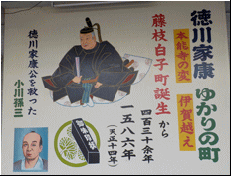 徳川家康
ゆかりの町
本能寺の変
伊賀越え
藤枝白子町誕生から
四百三十余年
一五八六年
(天正十四年)
徳川家康公を救った
小川孫三